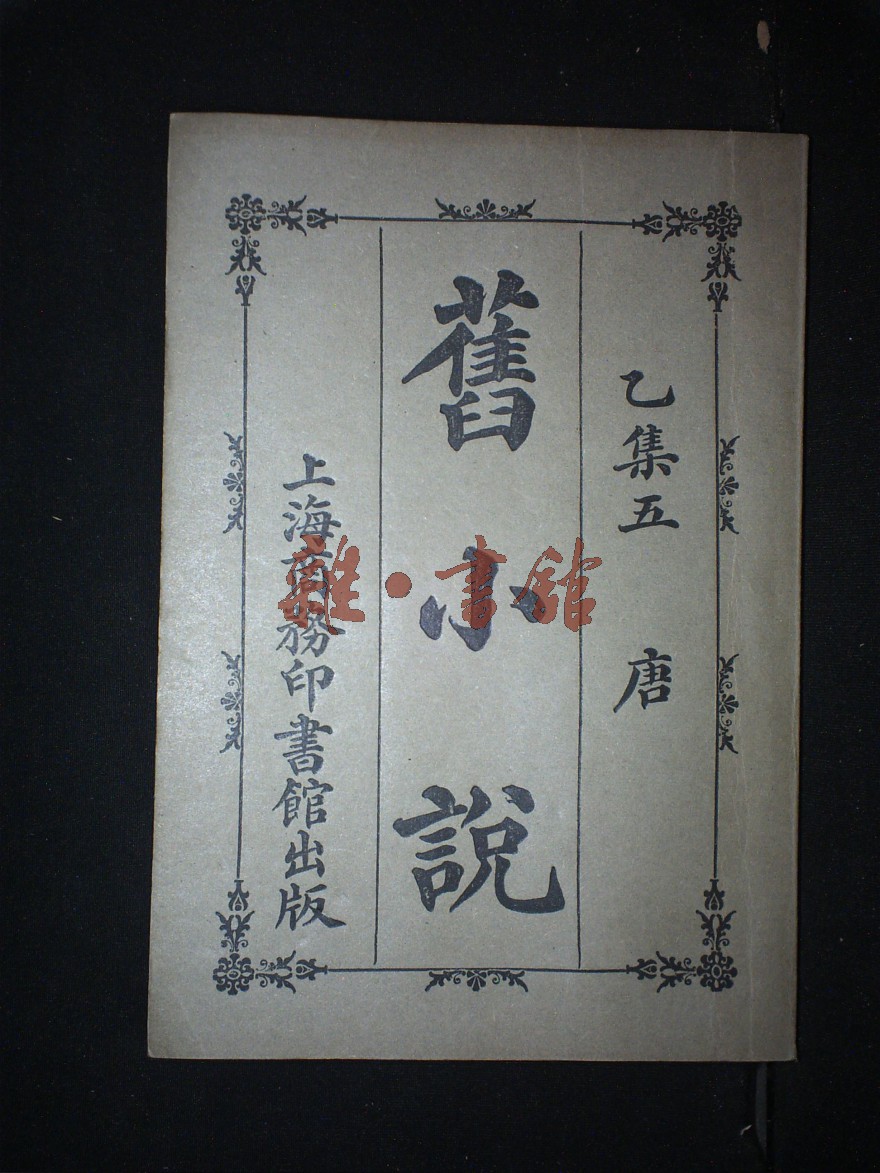 乙集五　唐
舊小說
上海商務印書館出版
雜·書館